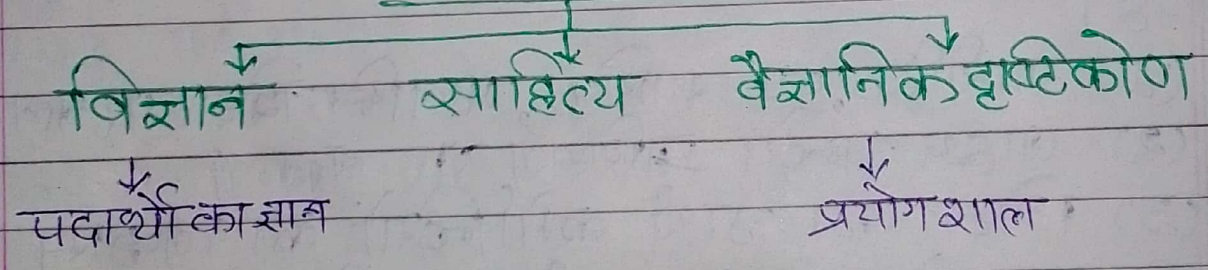 विज्ञान साहित्य वैज्ञानिक दृष्टिकोण
पदार्थो का ज्ञान प्रयोग शाल